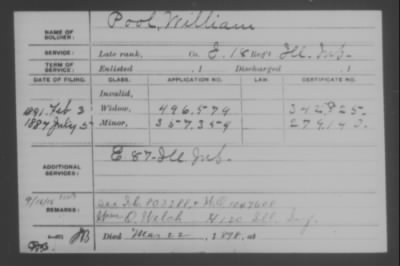 NAME OF SOLDIER: Pool, William
SERVICE: Late rank, Co. E, 18 Reg't Ill. Inf.
TERM OF SERVICE: Enlisted , 1 Discharged , 1
DATE OF FILING. CLASS. APPLICATION NO. LAW. CERTIFICATE NO.
Invalid,
1891, Feb 3 Widow, 496,579
1887 July 5 Minor, 357,359
ADDITIONAL SERVICES: E 87 Ill Inf.
REMARKS:
O. Welch H 120 Ill. Inf.
Died Mar 22, 1878, at